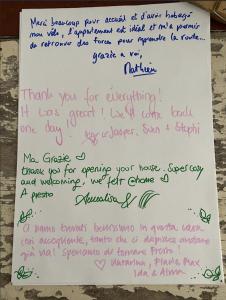 Merci beaucoup pour accueil et d'avoir hébergé
mon vélo, l'appartement est idéal et m'a permis
de retrouver des forces pour reprendre la route...
grazie a voi,
Mathieu
Thank you for everything!
It was great! We'll come back
one day! Jasper, Sven & Stephi
Ma Grazie ♡
thank you for opening your house. Super cosy
and welcoming, we felt @home ♡
A presto
Ci siamo trovati benissimo in questa casa
così accogliente, tanto che ci dispiace andare
già via! Speriamo di tornare Presto!
♡ Katarina, Max
Ida &